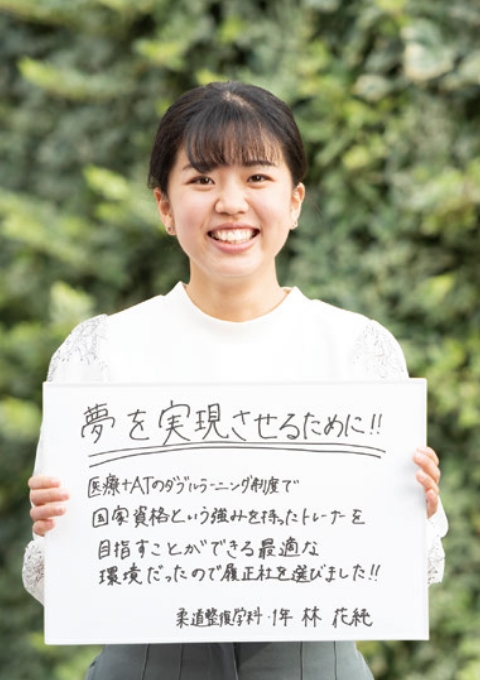 夢を実現させるために!!
医療+ATのダブルラーニング制度で
国家資格という強みを持ったトレーナーを
目指すことができる最適な
環境だったので履正社を選びました!!
柔道整復学科・1年 林 花純